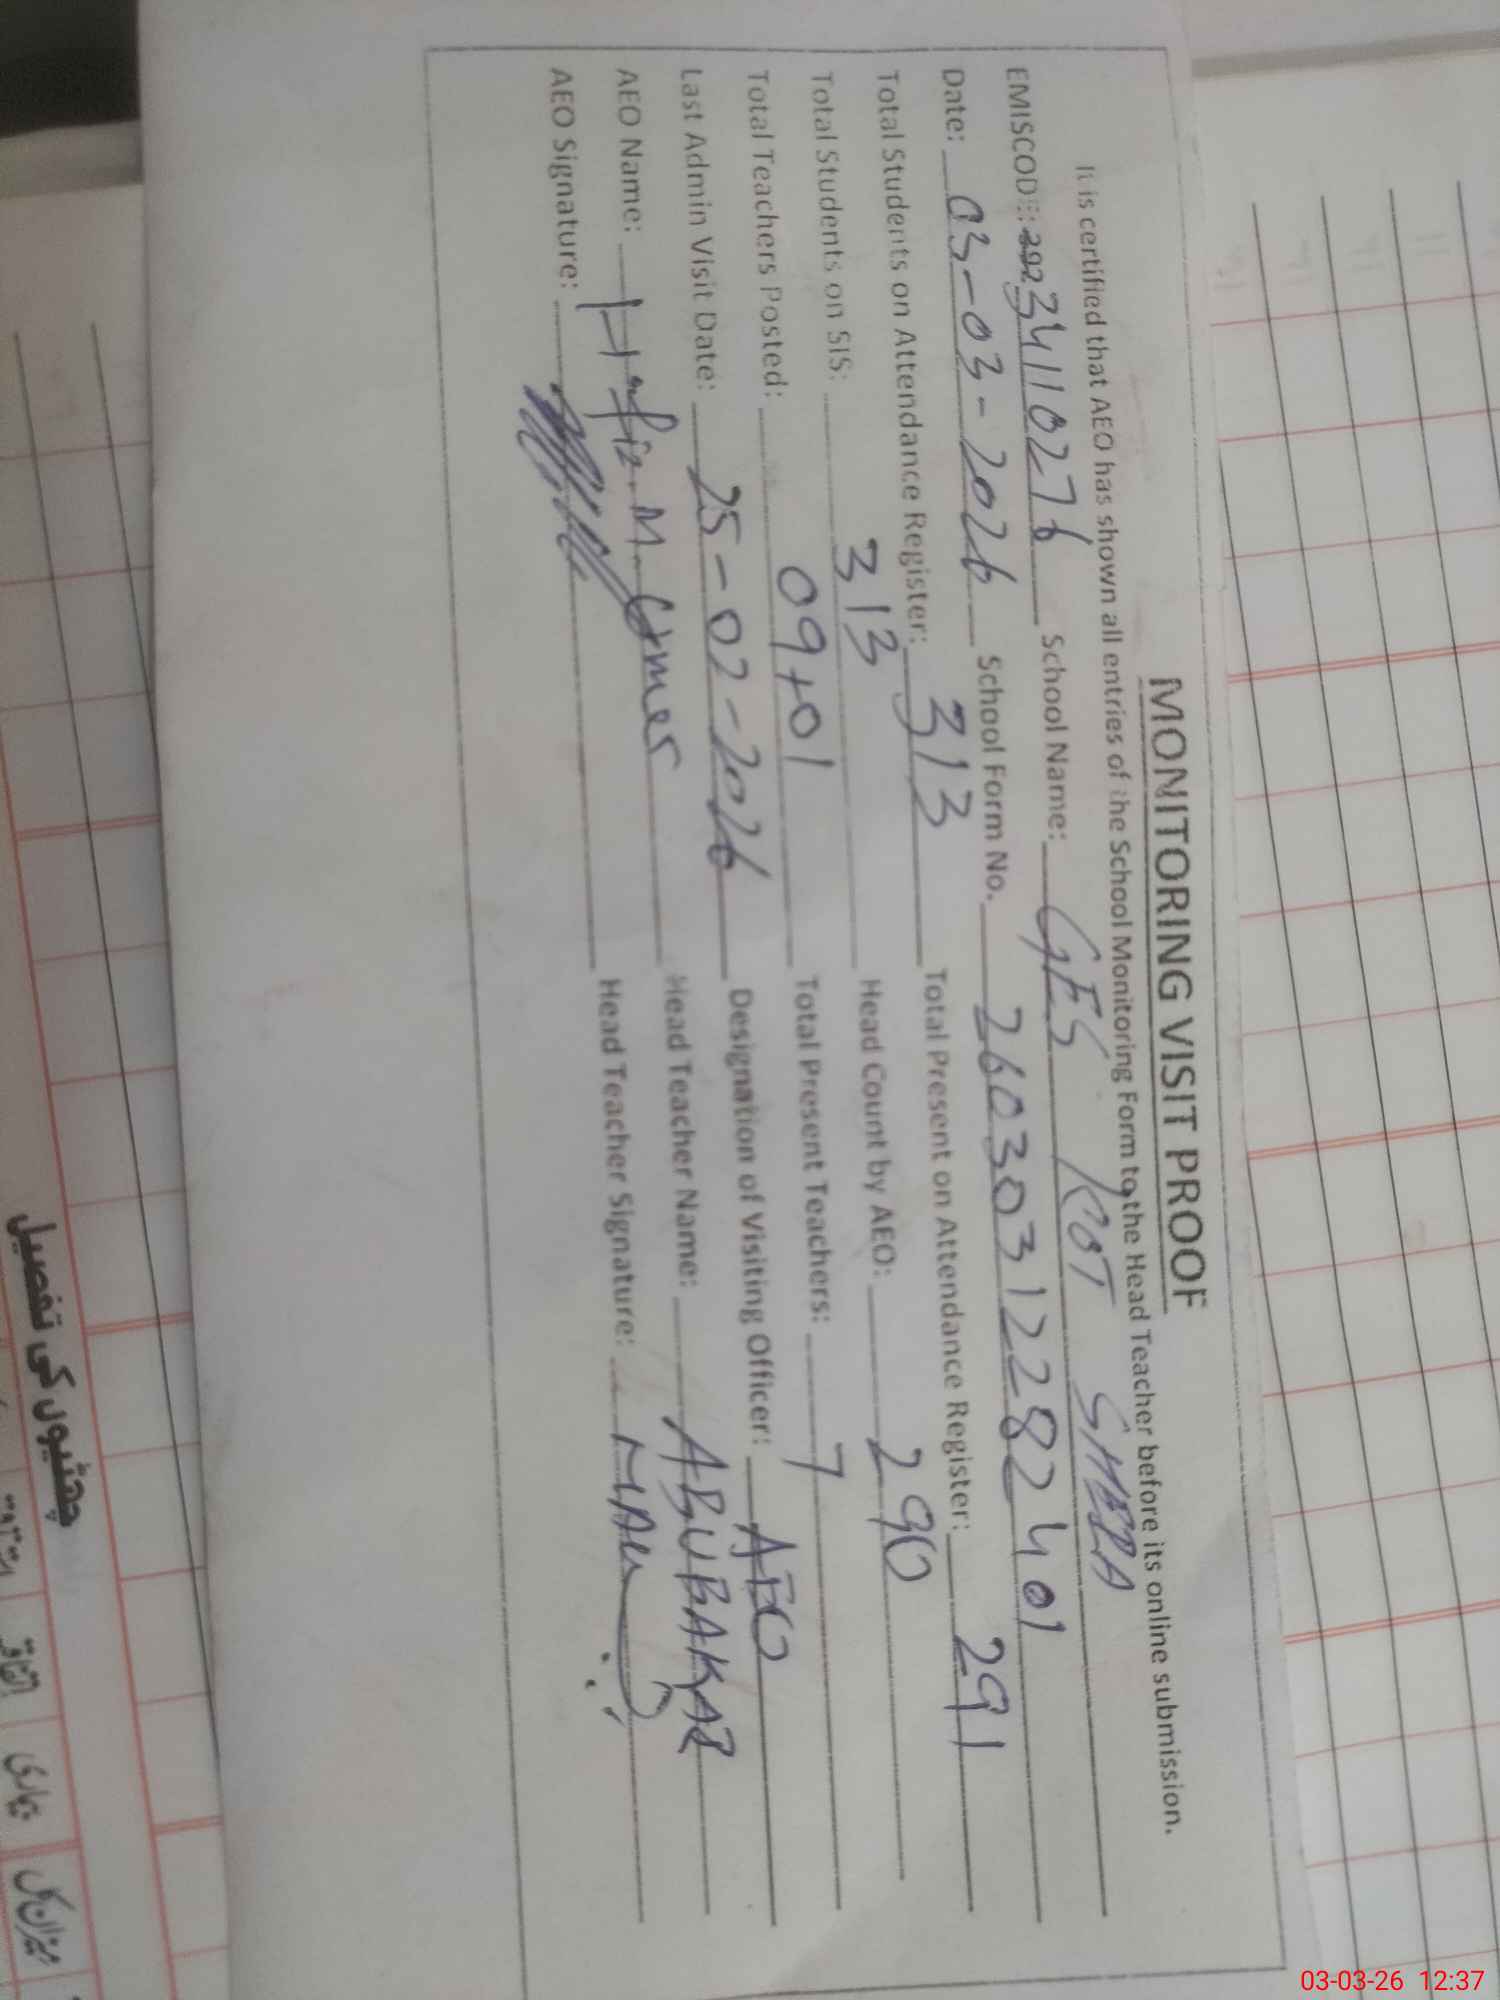 MONITORING VISIT PROOF
It is certified that AEO has shown all entries of the School Monitoring Form to the Head Teacher before its online submission.
EMISCODE: 34110276 School Name: GES KOT
Date: 03-03-2026 School Form No. 26030312282401
Total Students on Attendance Register: 313 Total Present on Attendance Register: 291
Total Students on SIS: 313 Head Count by AEO: 290
Total Teachers Posted: 09+01 Total Present Teachers: 7
Last Admin Visit Date: 25-02-2026 Designation of Visiting Officer: AEO
AEO Name: Hafiz M. Umer Head Teacher Name: ABUBAKAR
AEO Signature: Head Teacher Signature:
چھٹیوں کی تفصیل
اتفاقیہ
بیماری
میزان کل
03-03-26 12:37